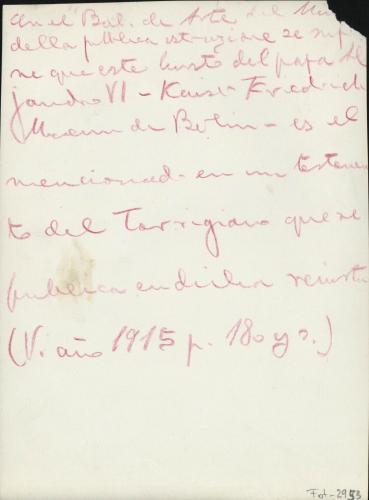 En el "Bol. de Arte del Min
della pubblica istruzione se supo
ne que este busto del papa Al
jandro VI - Kaiser Friedrich
Museum de Berlin - es el
mencionad. en un testamen
to del Torrigiano que se
publica en dicha revista
(V. año 1915 p. 180 y s.)
Fot-2953